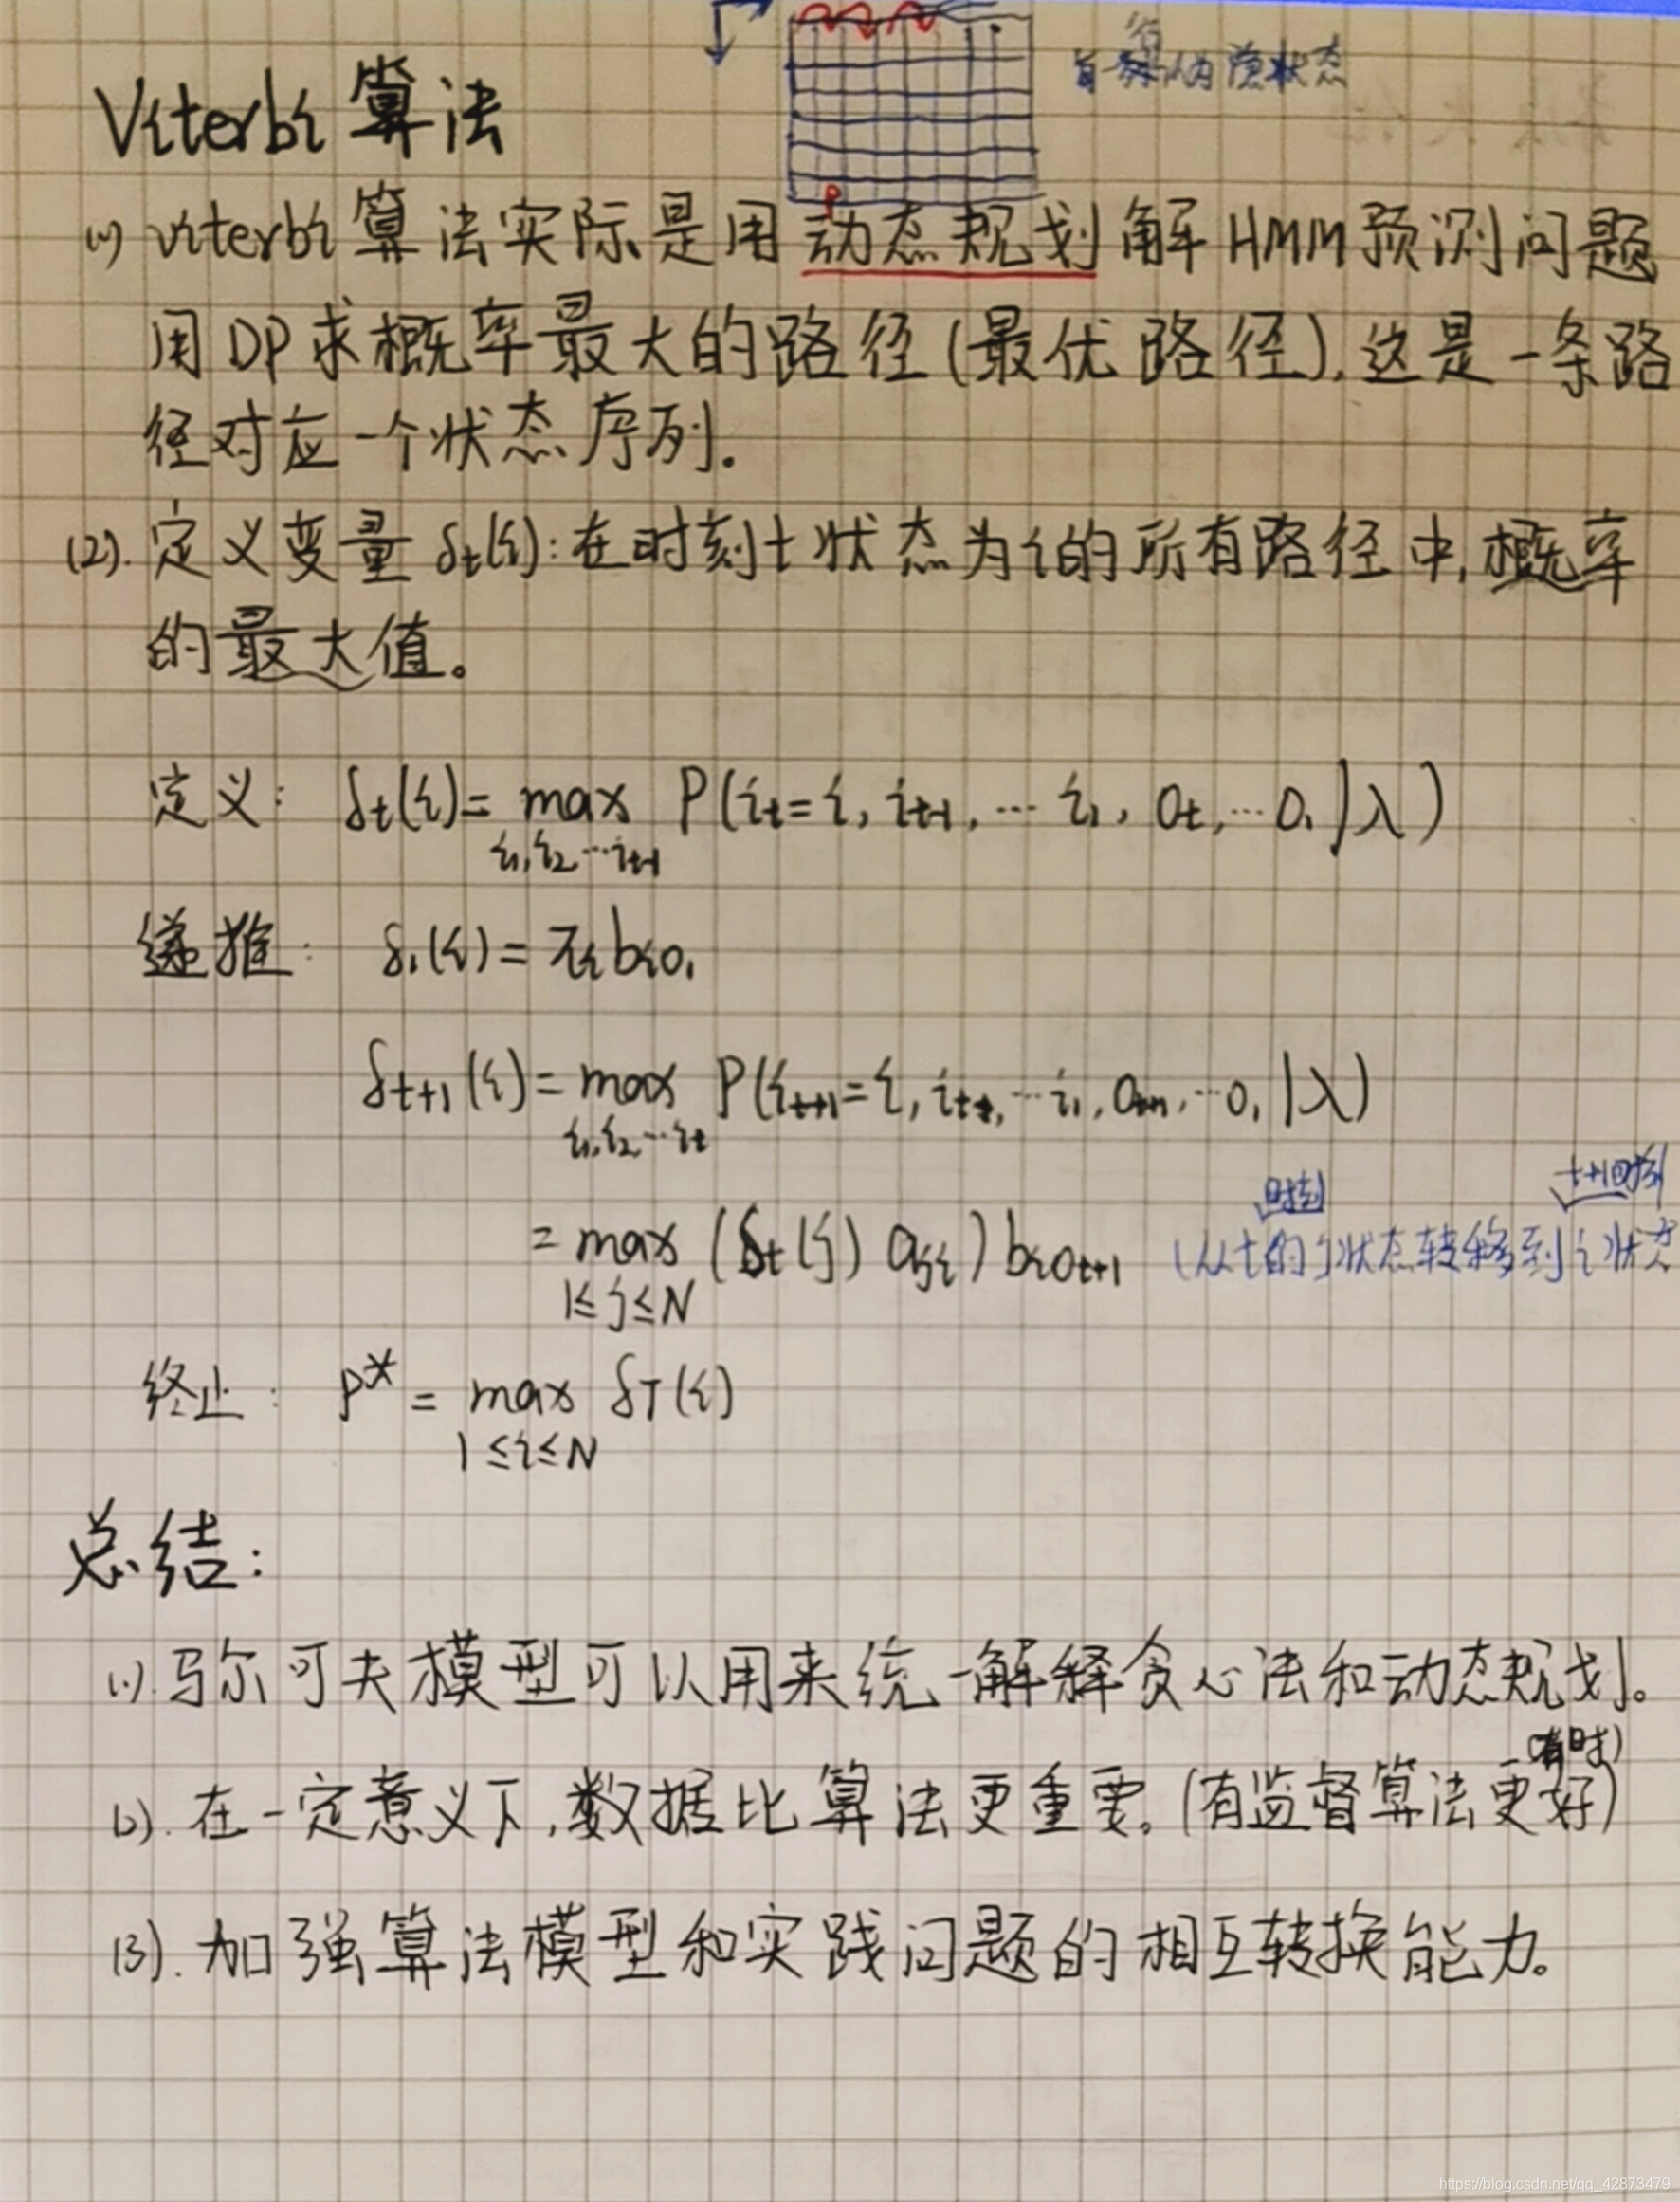 Viterbi 算法
(1) Viterbi 算法实际是用动态规划解HMM预测问题
用DP求概率最大的路径(最优路径),这是一条路
径对应一个状态序列.
(2). 定义变量 δt(i):在时刻t状态为i的所有路径中,概率
的最大值。
定义: δt(i)= max P(it=i, it-1, … i1, ot, … o1 | λ)
i1,i2…it-1
递推: δ1(i) = πi bio1
δt+1(i) = max P(it+1=i, it, … i1, ot+1, … o1 | λ)
i1,i2,…it
时刻 t+1时刻
= max (δt(j) aji) biot+1 (从t的j状态转移到i状态
1≤j≤N
终止: P* = max δT(i)
1≤i≤N
总结:
(1).马尔可夫模型可以用来统一解释贪心法和动态规划。
(有时)
(2). 在一定意义下,数据比算法更重要。(有监督算法更好)
(3). 加强算法模型和实践问题的相互转换能力。
https://blog.csdn.net/qq_42873479